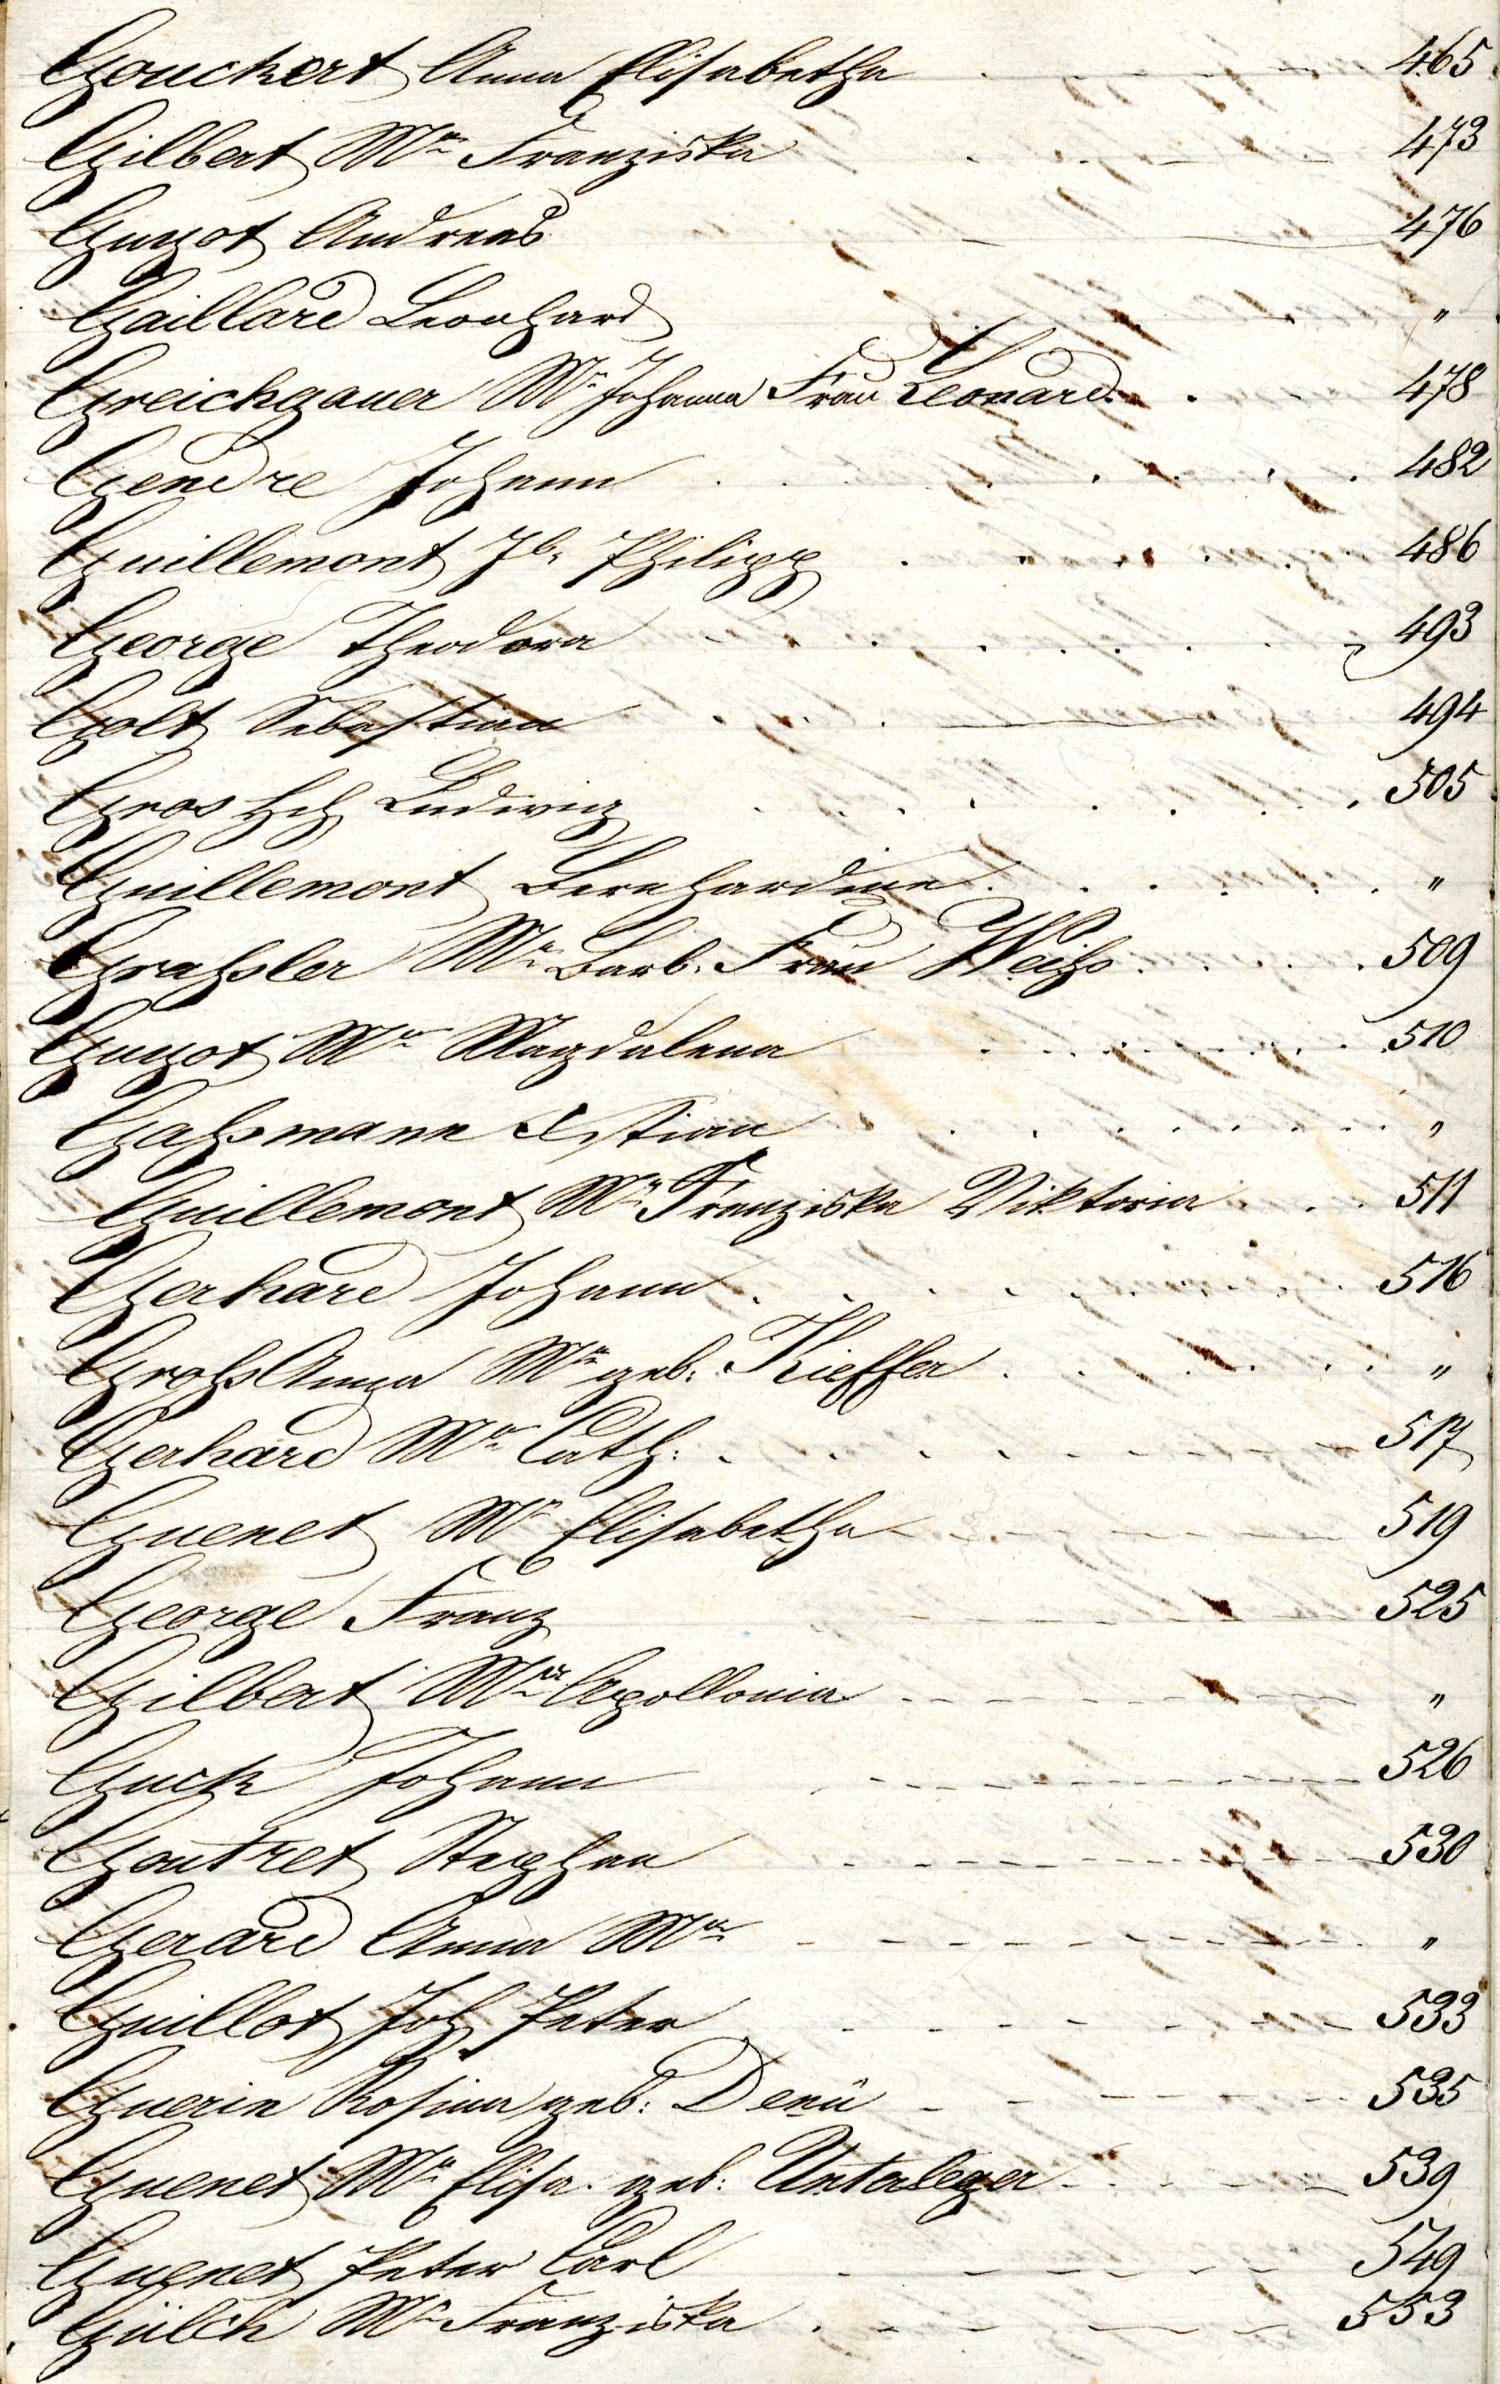 Gouckert Anna Elisabetha 465
Gilbert Mª Franziska 473
Guyot Andreas 476
Gaillard Leonhard "
Greichgauer Mª Johanna Frau Leonard. 478
Gendre Johann 482
Guillemont Jb. Philipp 486
George Theodora 493
Golt Sebastian 494
Gros Hch Ludwig 505
Guillemont Bernhardine "
Graßler Mª Barb. Frau Weihs 509
Guyot Mª Magdalena 510
Gaßmann Xstian "
Guillemont Mª Franziska Viktoria 511
Gerhard Johann 516
Groß Anna Mª geb. Kieffer "
Gerhard Mª Cath: 517
Guenet Mª Elisabetha 519
George Franz 525
Gilbert Mª Apollonia "
Guck Johann 526
Goutret Stephan 530
Gerard Anna Mª "
Guillot Joh Peter 533
Guerin Rosina geb: Denü 535
Guenet Mª Elisa. geb: Untaleger 539
Guenet Peter Carl 549
Gülch Mª Franziska 553